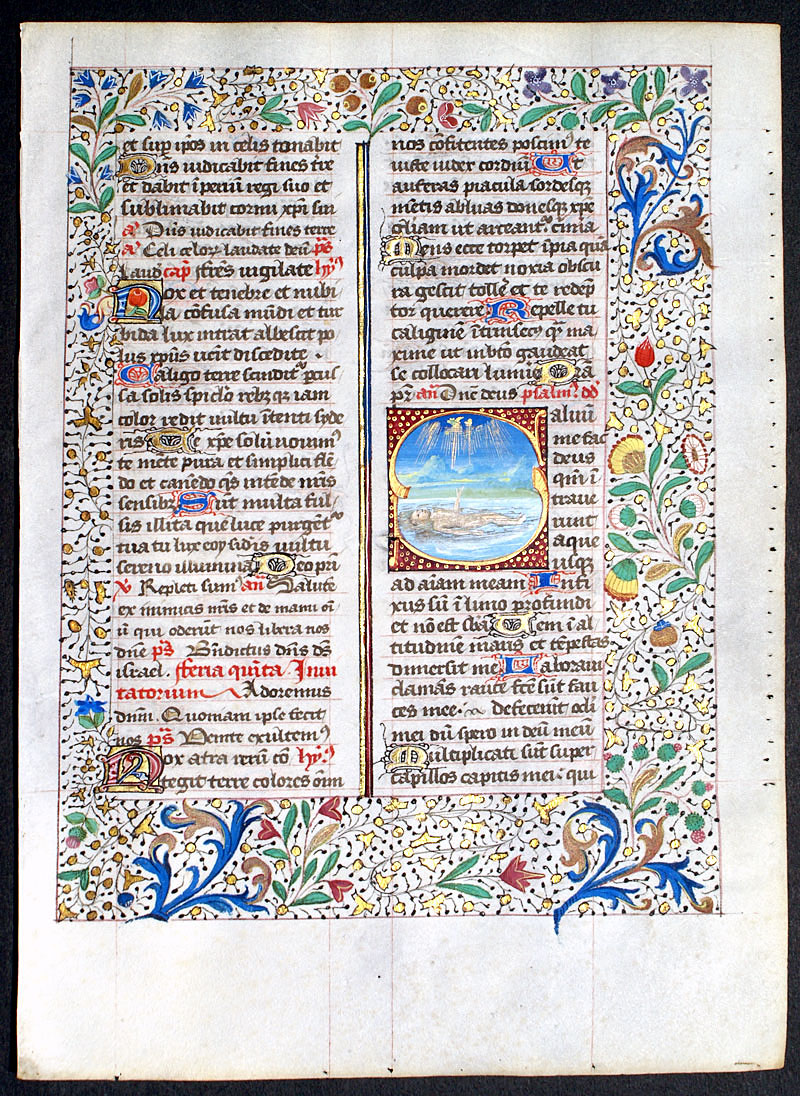 et sup ipos in celis tonabit
Dns iudicabit fines tre
et dabit iperiu regi suo et
sublimabit cornu xpi sui
a Dns iudicabit fines terre
a Celi celorū laudate deū ps
Laud cap ffres vigilate hy
Nox et tenebre et nubi
la cōfusa mūdi et tur
bida lux intrat albescit po
lus xpus venit discedite
Caligo terre scindit pcus
sa solis spiclo rebz q iam
color redit vultu itenti syde
ris Te xpe solū novim
te mēte pura et simplici flē
do et canēdo qs intēde nris
sensibz Sūt multa fu
sis illita que luce purgent
tua tu lux eoy sidis vultu
sereno illumina Deo pri
v Repleti sum an Salute
ex inimicis nris et de manu oī
ū qui oderūt nos libera nos
dne ps Bndictus dns ds
israel. fferia quinta Invi
tatorium Adoremus
dnm. Quoniam ipse fecit
nos ps Venite exultem
Nox atra rerū cō hy
tegit terre colores oīm
nos cōfitentes poscim te
iuste iudex cordiū Ut
auferas piacula sordesq
mētis abluas donesq xpe
grām ut arceant cīma
Mens ecce torpet īpia quā
culpa mordet noxia obscu
ra gestit tolle et te redēp
tor querere Repelle tu
caliginē ītrisecy q̄ ma
xime ut ī vbto gaudeat
se collocari lumie Pra
pr an Dne deus psalm dd
alvum
me fac
deus
qm i
trave
runt
aque
usqz
ad aīam meam Infi
xus sū ī limo profundi
et nō est sbā Veni ī al
titudinē maris et tēpestas
dimersit me Laboravi
clamās rauce fce sūt fau
ces mee defecerūt oclī
mei dū spero in deū meū
Multiplicati sūt super
capillos capitis mei qui